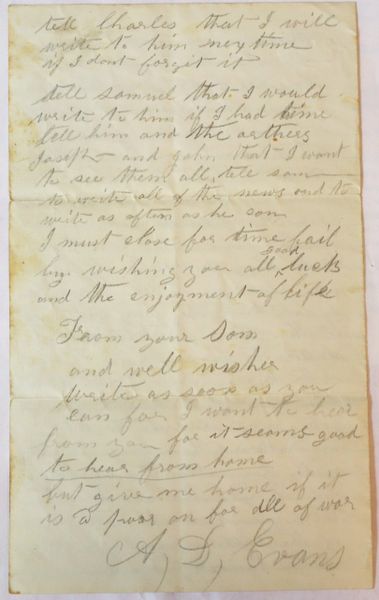 tell Charles that I will
write to him next time
if I dont forget it
tell samuel that I would
write to him if I had time
tell him and the arthers
Joseph and John that I want
to see them all tele sam
to write all of the news and to
write as often as he can
I must close for time fail
by wishing you all good luck
and the enjoyment of life
From your Son
and well wisher
write as soon as you
can for I want to hear
from you for it seams good
to hear from home
but give me home if it
is a poor on for all of war
A, D, Evans